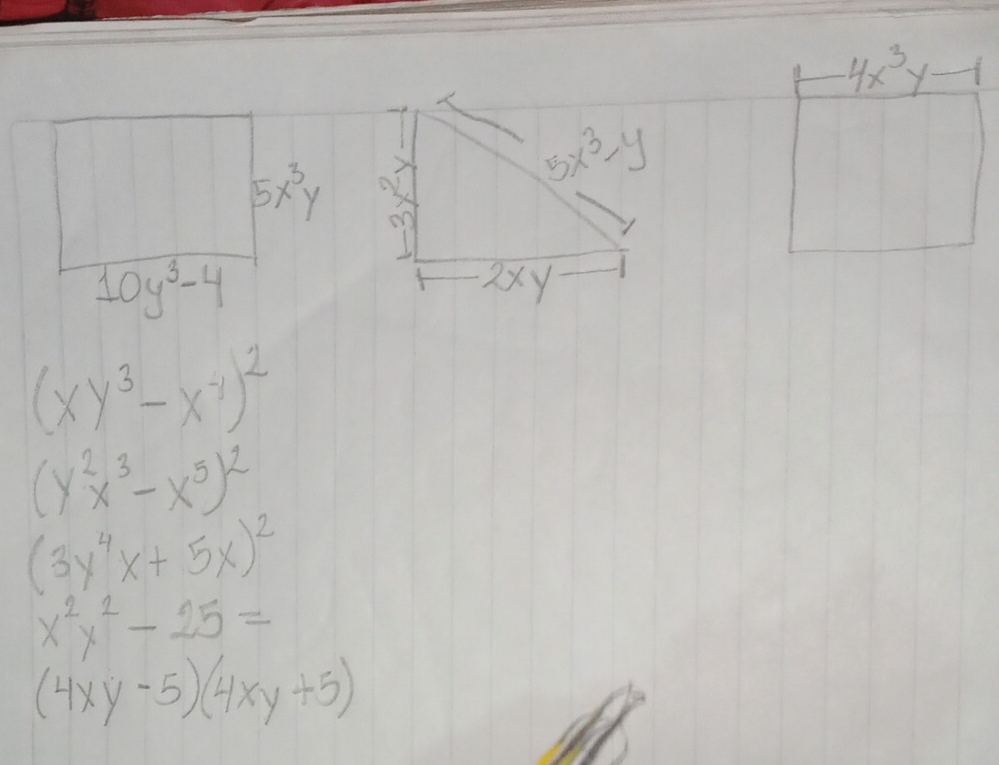 4x³y
5x³y
3x²y
5x³-y
10y³-4
2xy
(xy³ - x⁻¹)²
(y²x³ - x⁵)²
(3y⁴x + 5x)²
x²y² - 25 =
(4xy - 5)(4xy + 5)